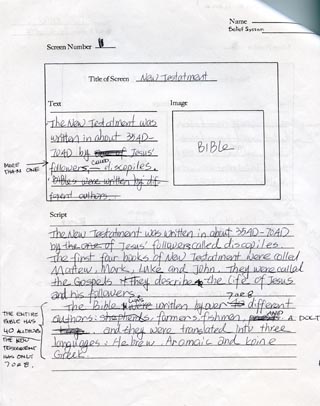 Name
Belief System
Screen Number
Title of Screen New Testatment
Text
Image
The New Testatment was
written in about 35AD-
70AD by one of Jesus'
MORE
THAN ONE
followers, called discopiles.
Bibles were written by
ferent authors.
BIBLE
Script
The New Testatment was written in about 35AD-70AD
by the one of Jesus' followers called discopiles.
The first four books of New Testatment were called
Mattew, Mark, Luke and John. They were called
the Gospels. They describe the life of Jesus
and his followers.
7 OR 8
The Bible was written by over different
authors: shepherds, farmers, fishmen, AND A DOCT
and they were translated into three
languages: Hebrew, Aromaic and Koine
Greek.
THE ENTIRE
BIBLE HAS
40 AUTHORS
THE NEW
TESTATMENT
HAS ONLY
7 OR 8.